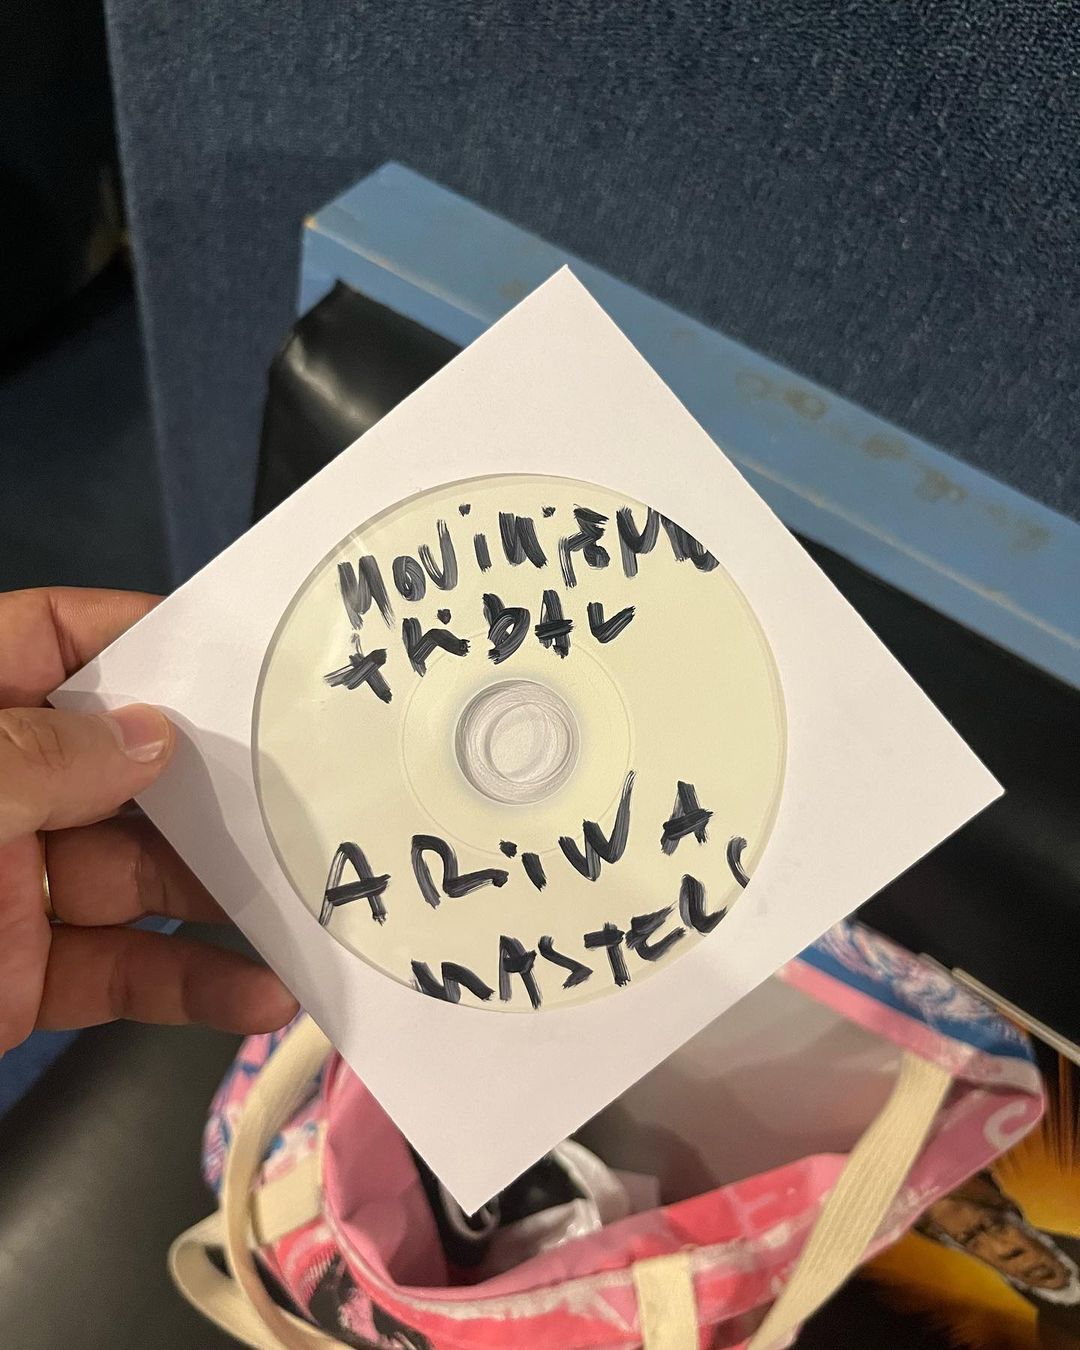 MOViMiENtO
tRibAL
ARiWA
MASTERS